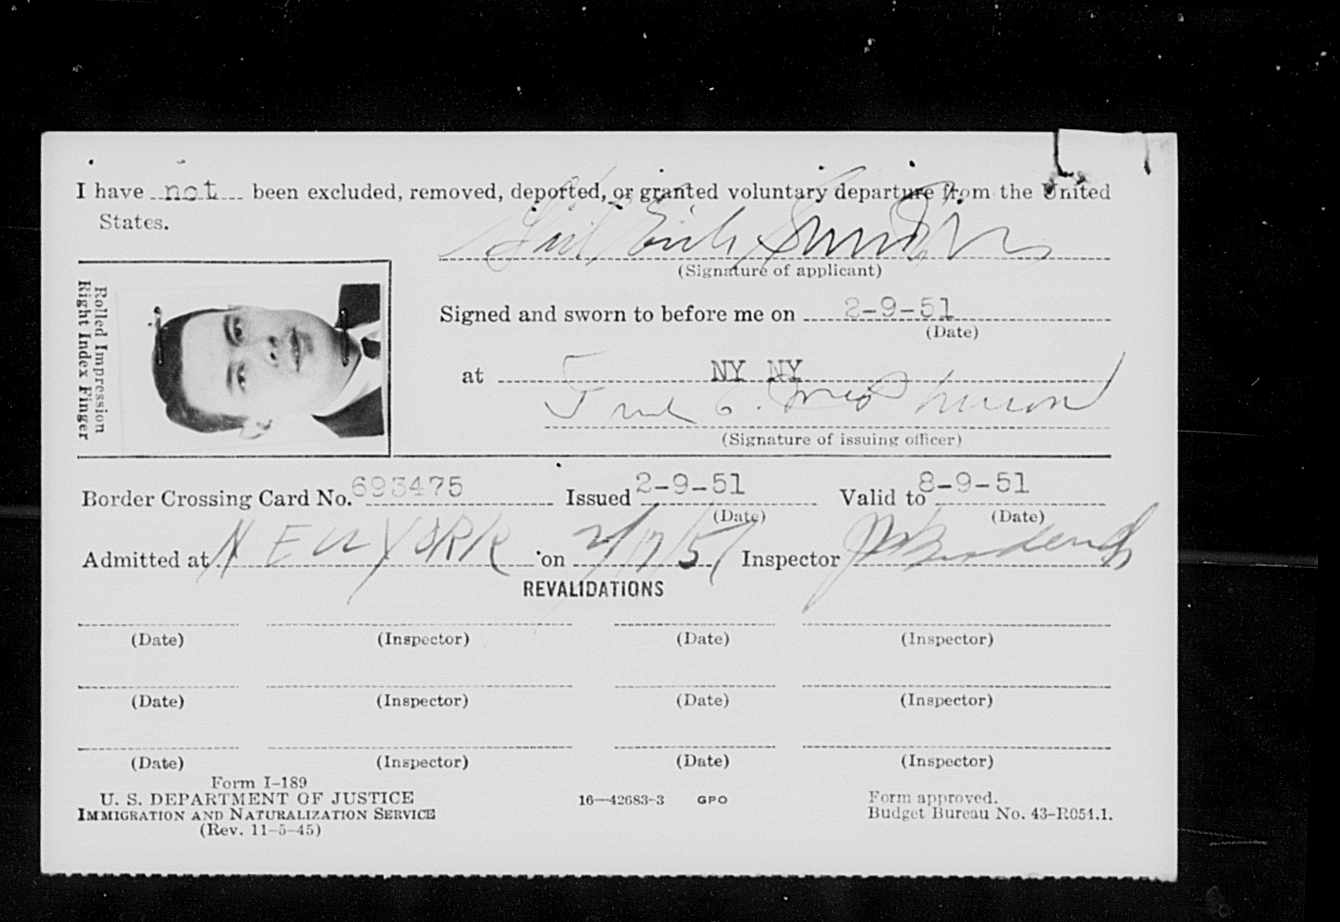 I have not been excluded, removed, deported, or granted voluntary departure from the United
States.
(Signature of applicant)
Rolled Impression
Right Index Finger
Signed and sworn to before me on 2-9-51
(Date)
at NY NY
(Signature of issuing officer)
Border Crossing Card No. 693475 Issued 2-9-51 Valid to 8-9-51
(Date) (Date)
Admitted at NEW YORK on 2/17/51 Inspector
REVALIDATIONS
(Date) (Inspector) (Date) (Inspector)
(Date) (Inspector) (Date) (Inspector)
(Date) (Inspector) (Date) (Inspector)
Form I-189
U. S. DEPARTMENT OF JUSTICE 16—42683-3 GPO Form approved.
IMMIGRATION AND NATURALIZATION SERVICE Budget Bureau No. 43-R054.1.
(Rev. 11-5-45)